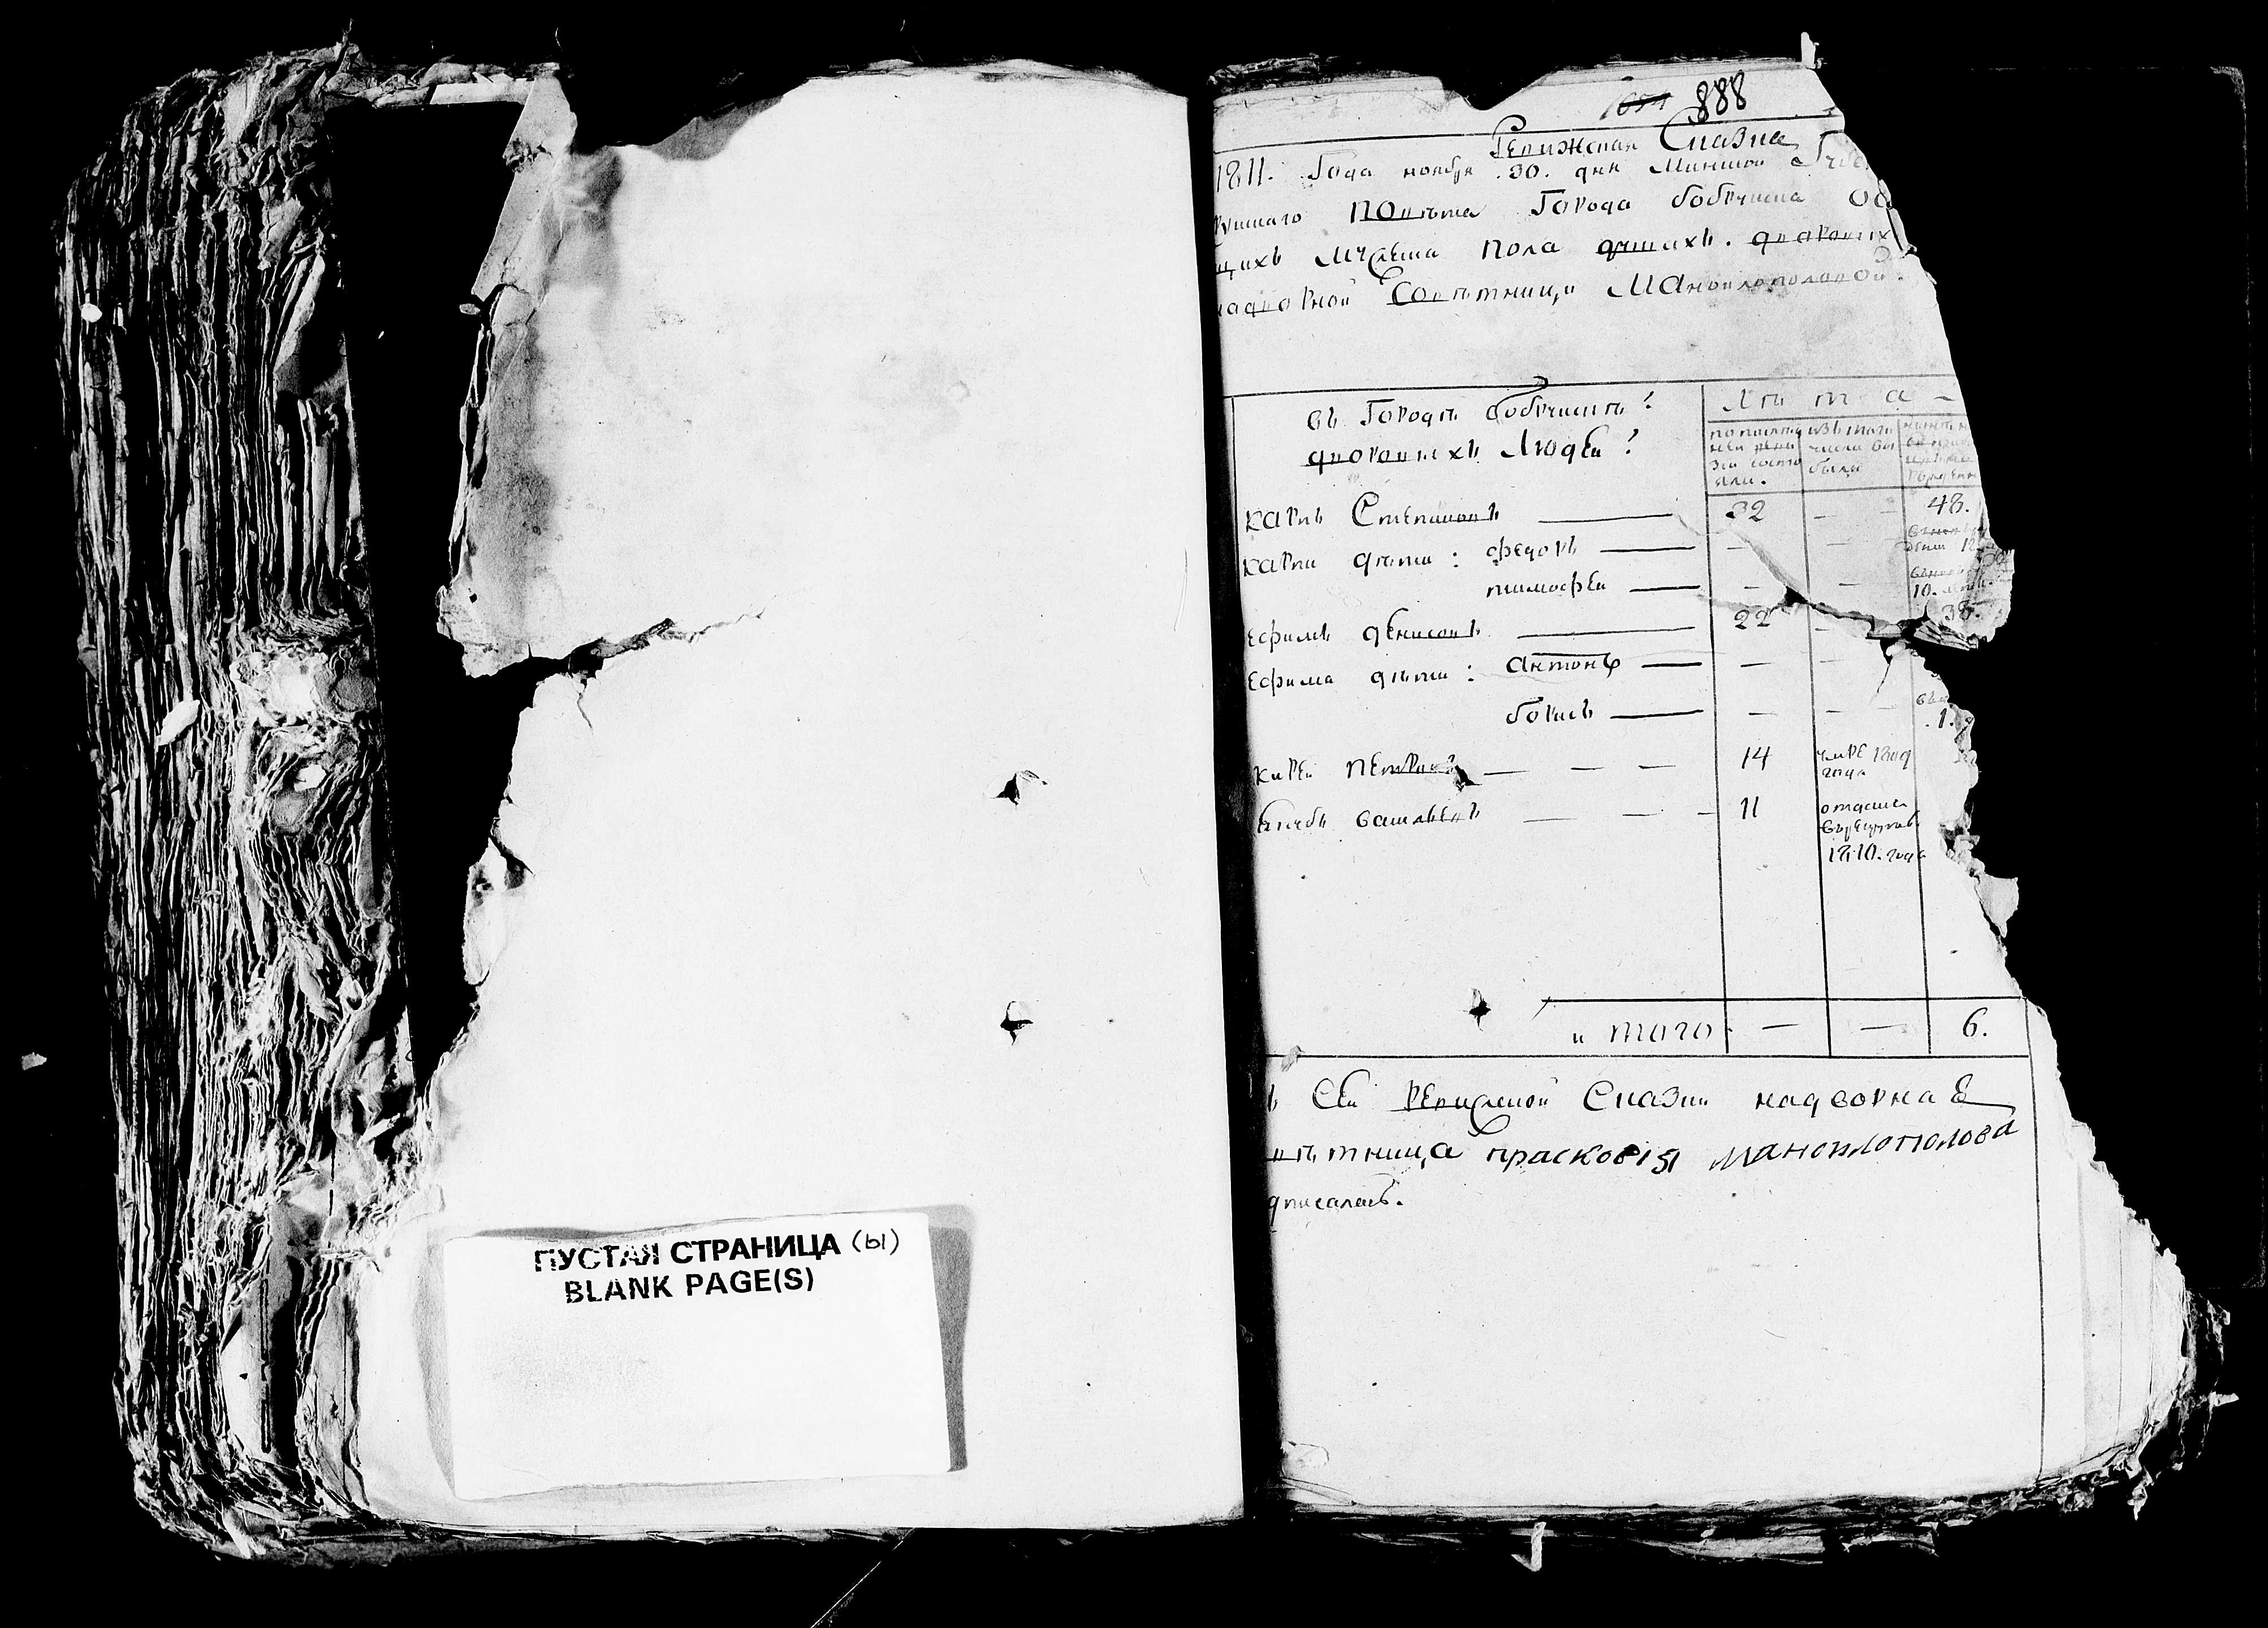 ПУСТАЯ СТРАНИЦА (Ы)
BLANK PAGE(S)
888
Ревижская Сказка
1811. Года ноября 30. дня Минской Губе
повѣта Города бобруиска
щихъ мужеска пола душахъ. дворовых
надворной Совѣтници Маноилополовой.
въ Городѣ бобруискѣ
дворовыхъ Людей
Лѣта
по послѣд изъ того
ней реви числа вы
зіи состо были
яли.
карпъ Степановъ 32 — 48.
карпа дѣти: федоръ — —
тимофей — — 10.
ефимъ денисовъ 22 — 38.
ефима дѣти: антонъ — —
борисъ — — 1.
кирей петровъ 14 умре 1809
года
васильевъ 11 отдашъ
въ рекруты
1810. года
итого — — 6.
Сей ревижской Сказки надворная
вѣтница прасковія маноилополова
дписалась.